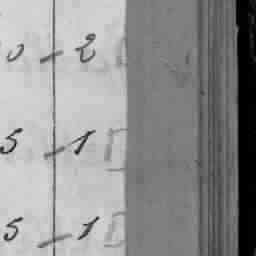 0 - 2
5 - 1
5 - 1